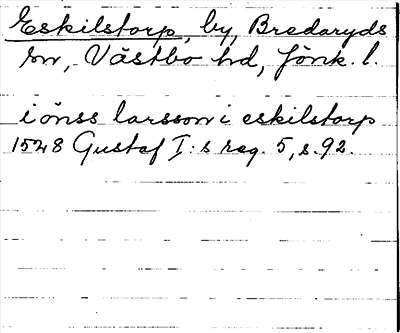 Eskilstorp, by, Bredaryds
sn, Västbo hd, Jönk. l.
i önss larsson i eskilstorp
1548 Gustaf I:s reg. 5, s. 92.